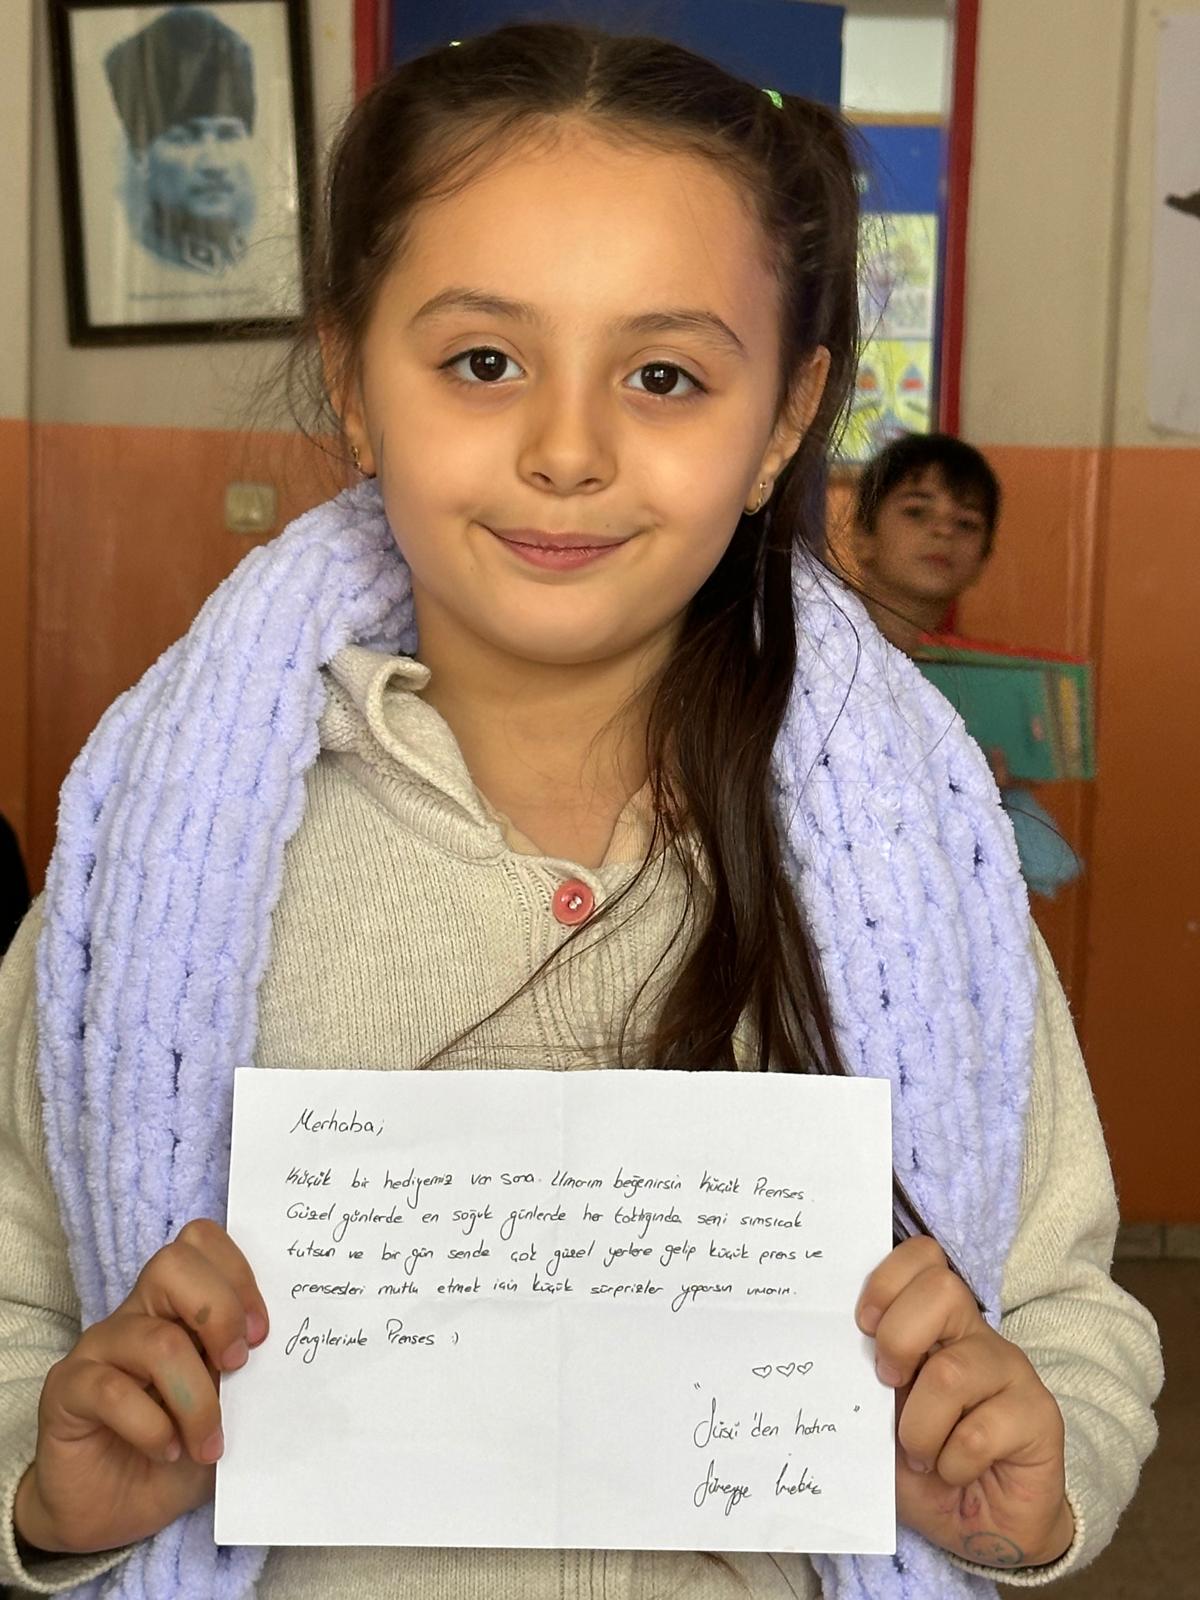 Merhaba;
Küçük bir hediyemiz var sana. Umarım beğenirsin Küçük Prenses.
Güzel günlerde en soğuk günlerde her taktığında seni sımsıcak
tutsun ve bir gün sende çok güzel yerlere gelip küçük prens ve
prensesleri mutlu etmek için küçük sürprizler yaparsın umarım.
Sevgilerimle Prenses :)
"
Süslü'den hatıra "